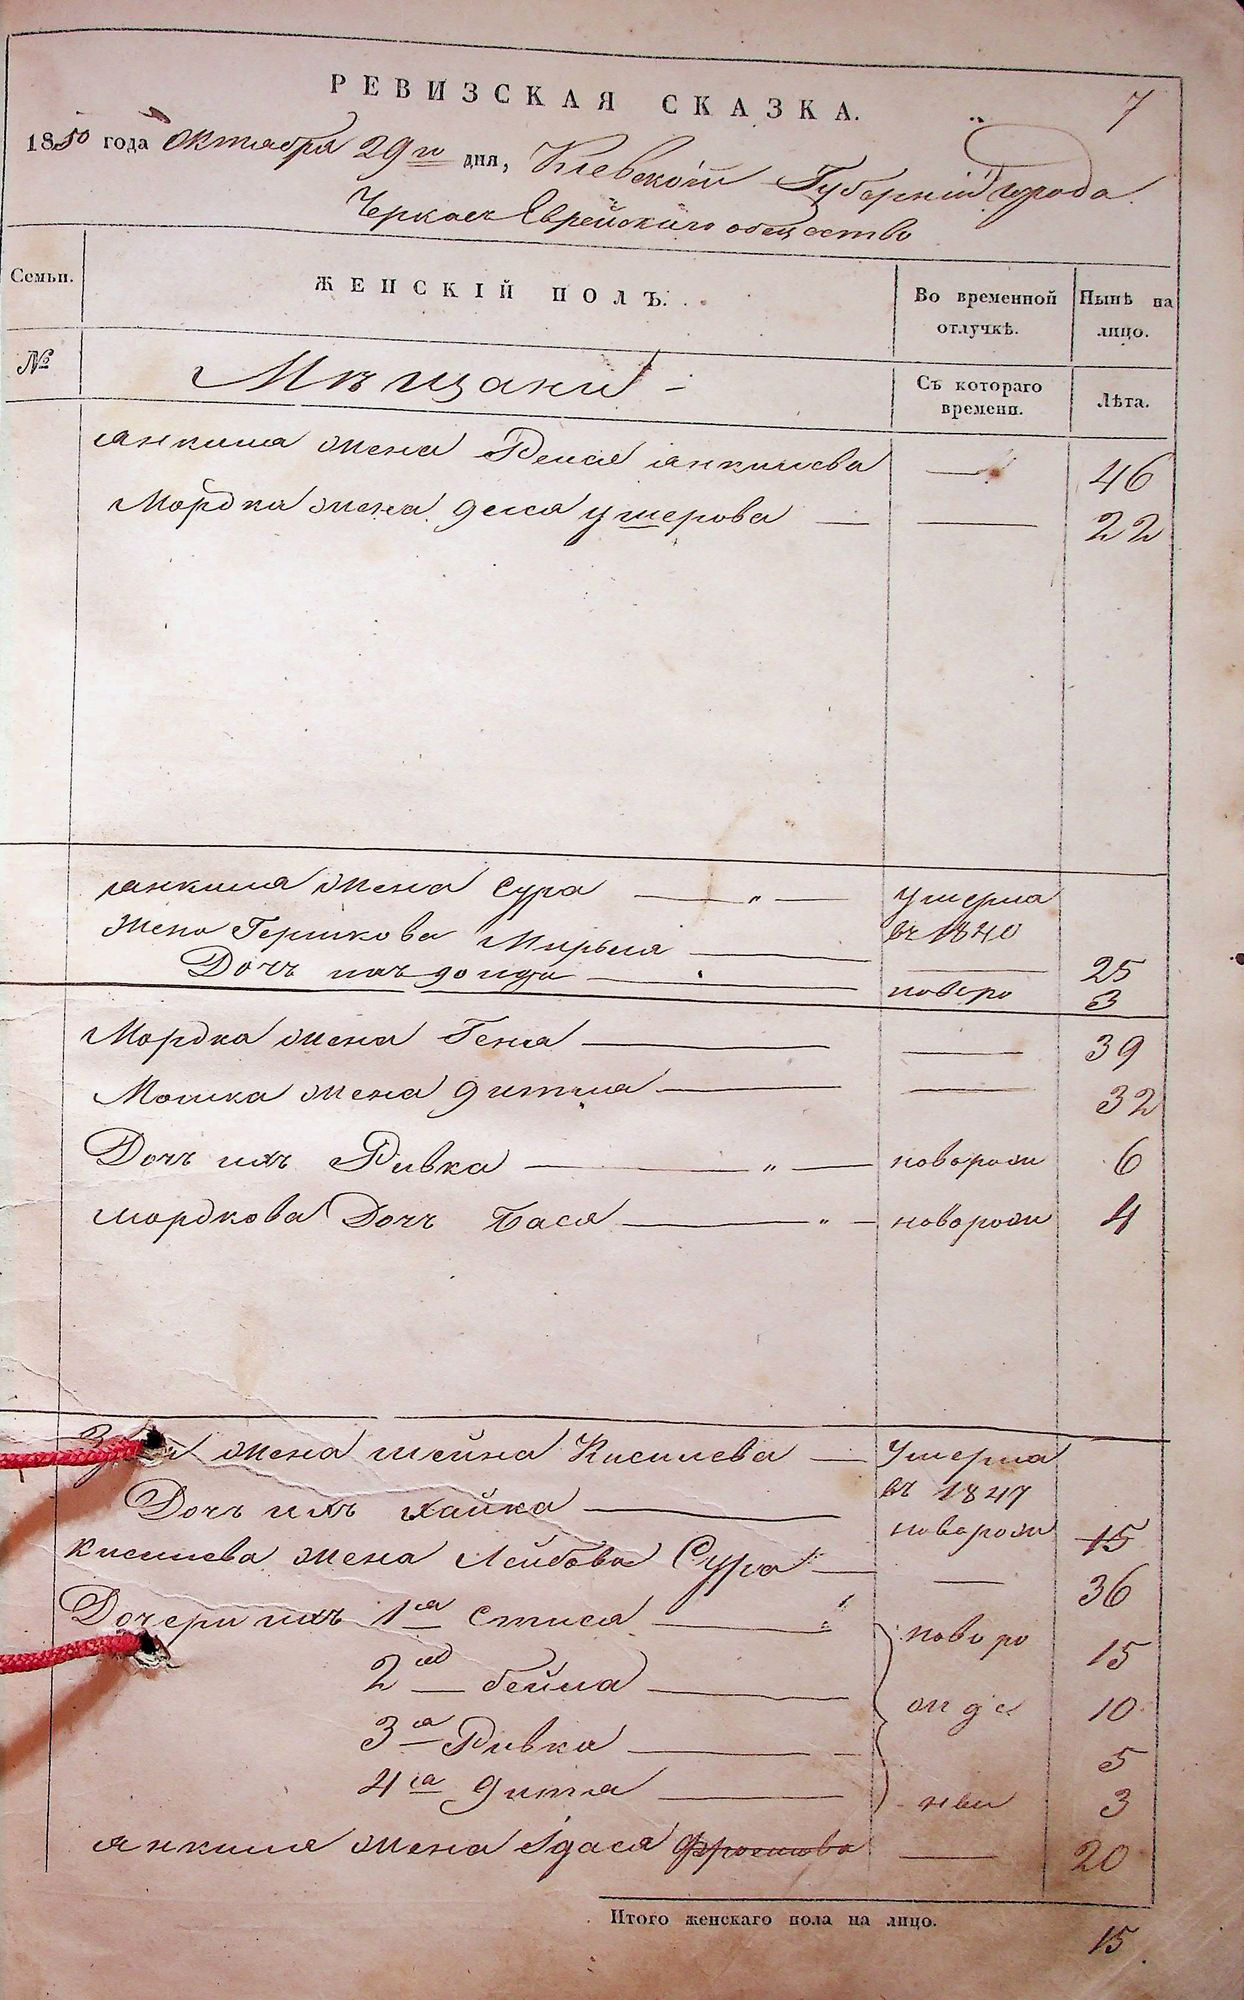 РЕВИЗСКАЯ СКАЗКА.
7
1850 года Октября 29го дня, Киевской Губерніи города
Черкасъ Еврейскаго общество
Семьи.
ЖЕНСКІЙ ПОЛЪ.
Во временной отлучкѣ.
Нынѣ на лицо.
№
Мѣщани
Съ котораго времени.
Лѣта.
Янкиля жена Рейся Янкилева — 46
Мордка жена деся — 22
Янкиля жена Сура — „ — умерла въ 1840
Жена Гершкова Мирьля — 25
Дочь ихъ — новоро 3
Мордка жена Геня — 39
Мошка жена дитля — 32
Дочь ихъ Ривка — „ — новорож 6
Мордкова Дочь Бася — „ — новорож 4
жена шейна Кисилева — Умерла въ 1847
Дочь ихъ хайка — новорож 15
Кисилева жена Лейбова Сура — 36
Дочери ихъ 1я Стися — новоро 15
2я бейла — жде 10
3я Ривка — 5
4я дитя — нни 3
Янкиля жена Адася — 20
Итого женскаго пола на лицо.
15